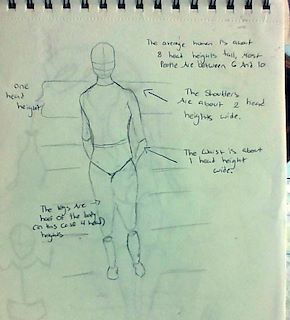 The average human is about
8 head heights tall, most
People are between 6 And 10
one
head
height
The Shoulders
Are about 2 head
heights wide.
The Waist is about
1 head height
wide.
The legs Are
half of the body
(in this case 4 head)
heights